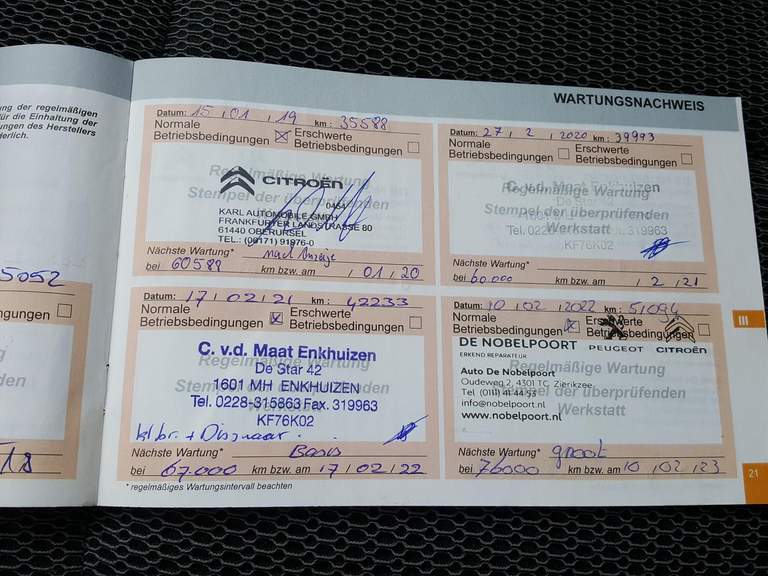 ng der regelmäßigen
ür die Einhaltung der
ngen des Herstellers
derlich.
5052
ngungen
den
18
WARTUNGSNACHWEIS
Datum: 15 / 01 / 19 km: 35588
Normale Betriebsbedingungen Erschwerte Betriebsbedingungen
Regelmäßige Wartung
Stempel der überprüfenden
CITROËN
KARL AUTOMOBILE GMBH
FRANKFURTER LANDSTRASSE 80
61440 OBERURSEL
TEL.: (06171) 91976-0
Nächste Wartung* nach Anzeige
bei 60588 km bzw. am / 01 / 20
Datum: 27 / 2 / 2020 km: 39993
Normale Betriebsbedingungen Erschwerte Betriebsbedingungen
Regelmäßige Wartung
Stempel der überprüfenden
Werkstatt
C. v.d. Maat Enkhuizen
De Star 42
KF76K02
Nächste Wartung*
bei 60.000 km bzw. am / 2 / 21
Datum: 17 / 02 / 21 km: 42233
Normale Betriebsbedingungen Erschwerte Betriebsbedingungen
C. v.d. Maat Enkhuizen
De Star 42
1601 MH ENKHUIZEN
Tel. 0228-315863 Fax. 319963
KF76K02
Nächste Wartung* Basis
bei 67.000 km bzw. am 17 / 02 / 22
* regelmäßiges Wartungsintervall beachten
Datum: 10 / 02 / 2022 km: 51094
Normale Betriebsbedingungen Erschwerte Betriebsbedingungen
DE NOBELPOORT PEUGEOT CITROËN
ERKEND REPARATEUR
Regelmäßige Wartung
Stempel der überprüfenden
Werkstatt
Auto De Nobelpoort
Oudeweg 2, 4301 TC Zierikzee
Tel (0111) 41 44 53
info@nobelpoort.nl
www.nobelpoort.nl
Nächste Wartung* groot
bei 76000 km bzw. am 10 / 02 / 23
III
21